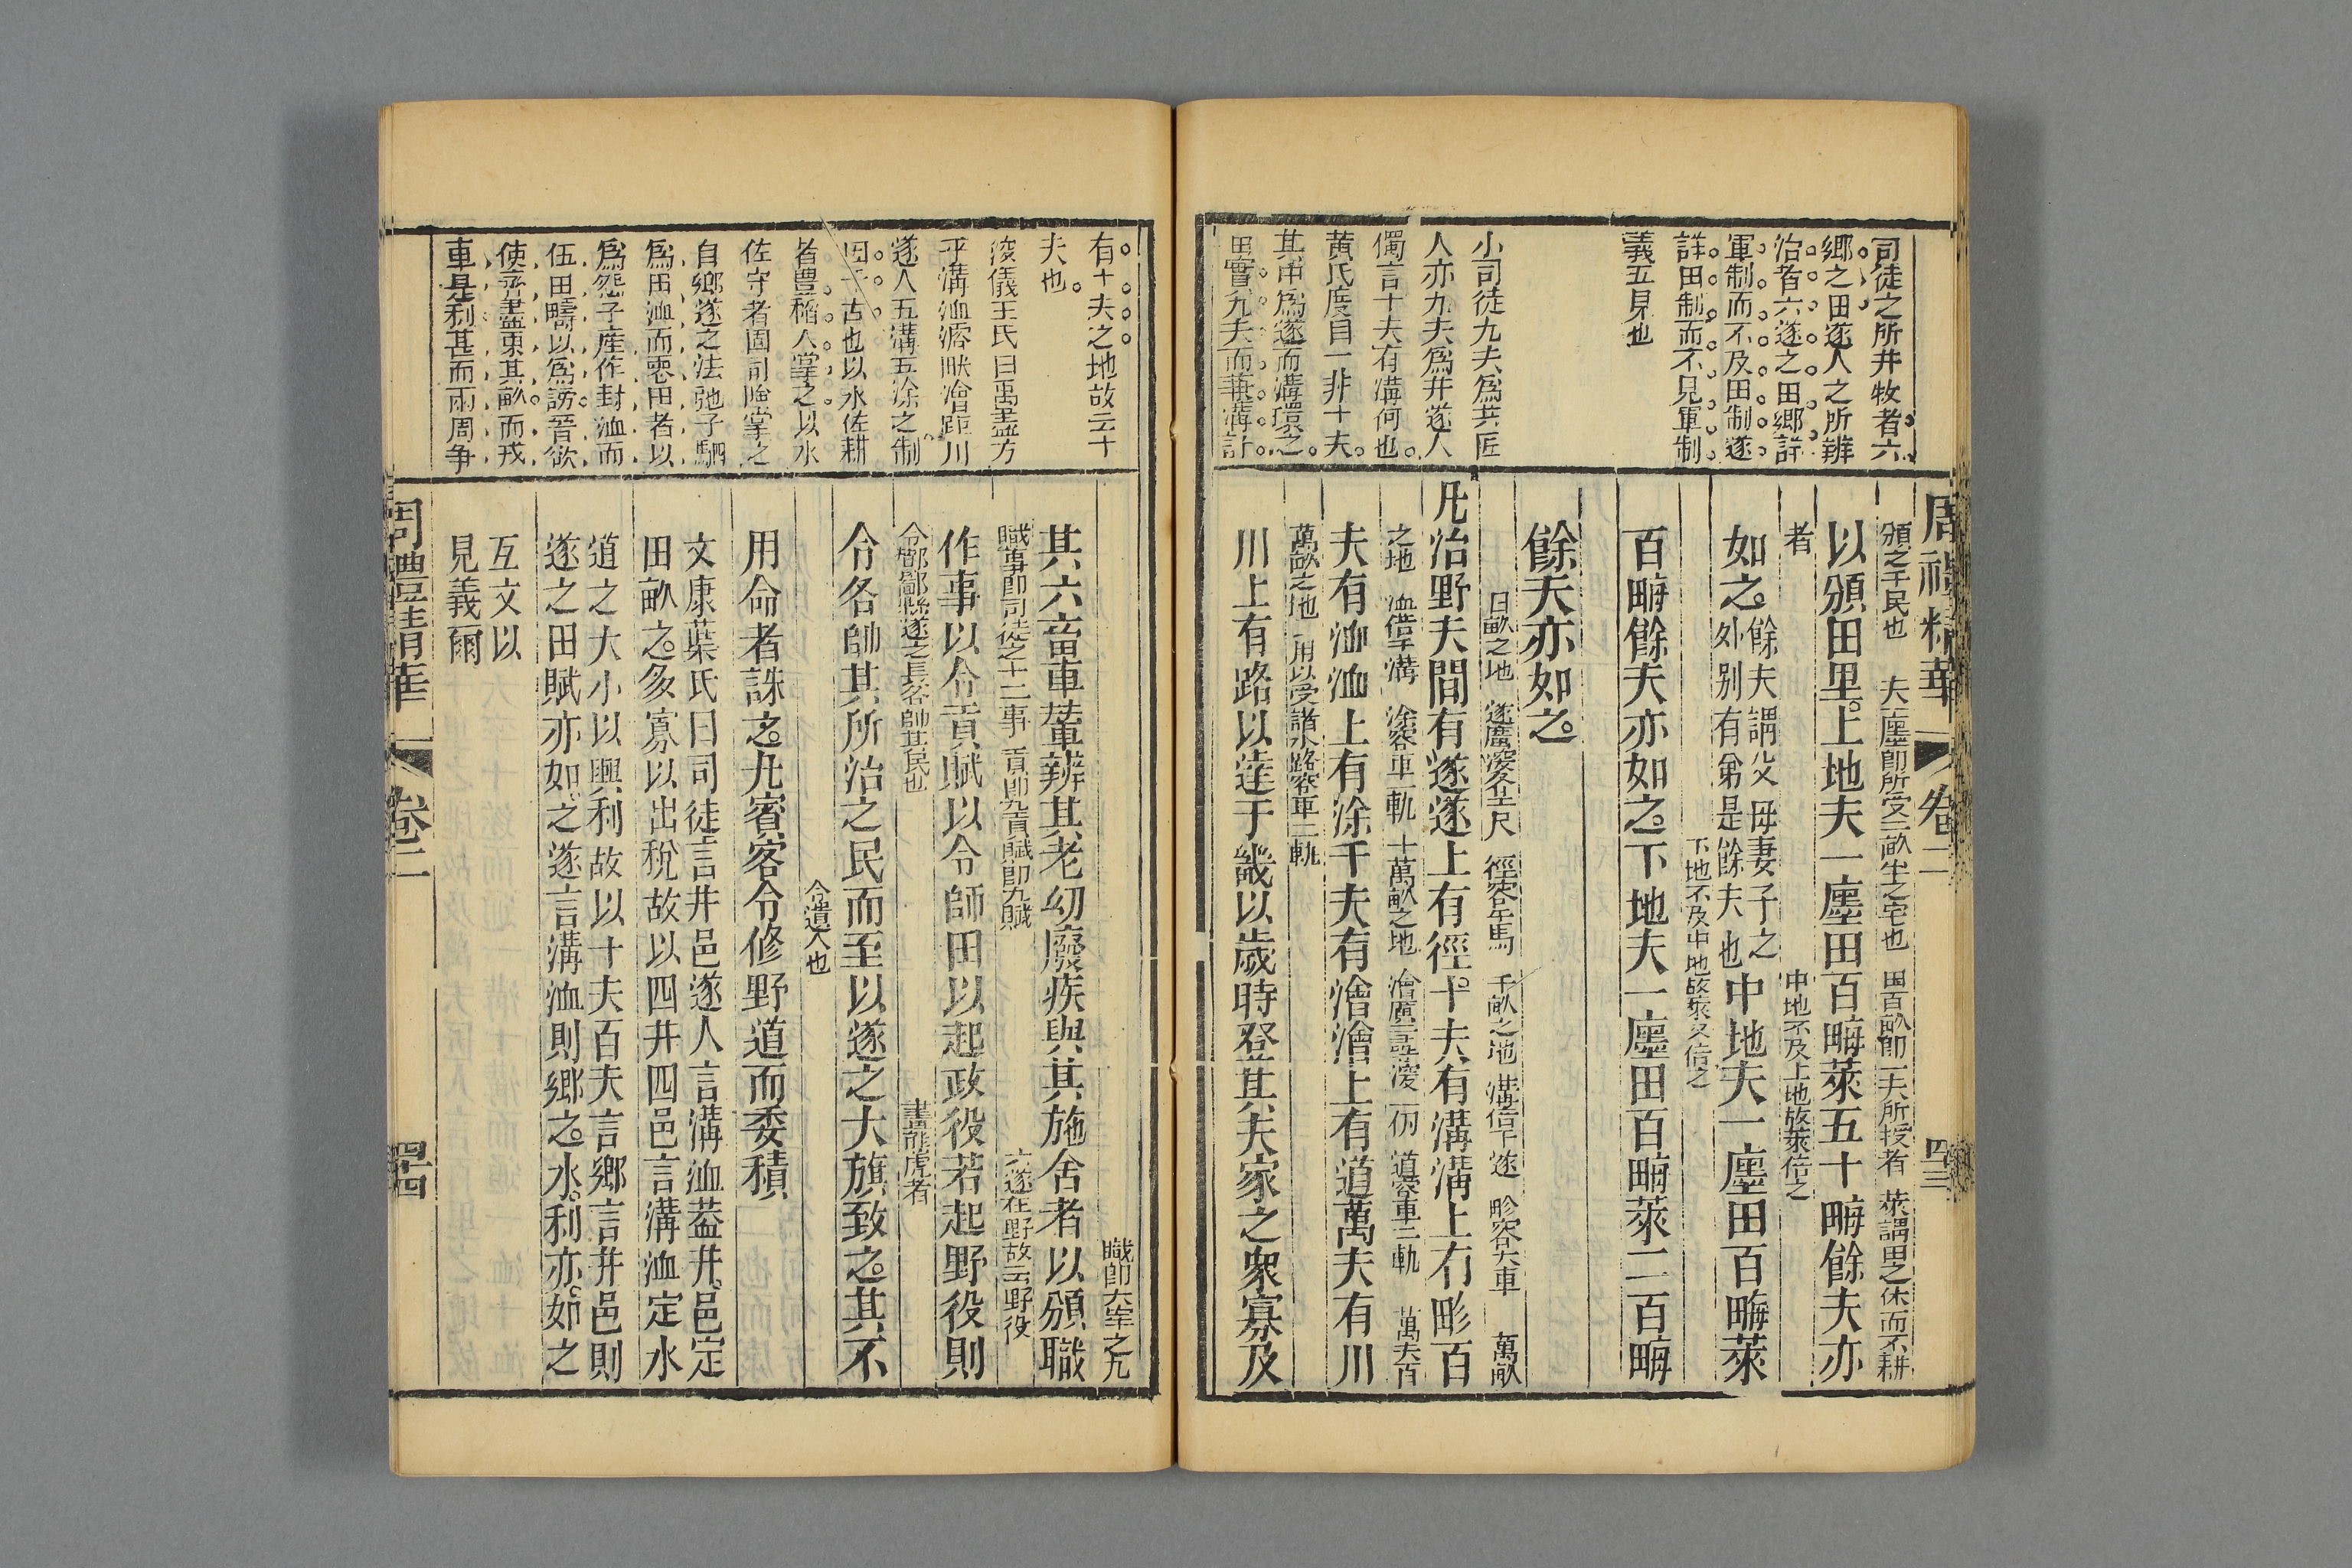 周禮精華
卷二
司徒之所井牧者六
鄉之田遂人之所辨
治者六遂之田鄉詳
軍制而不及田制遂
詳田制而不見軍制
義五見也
小司徒九夫爲井匠
人亦九夫爲井遂人
獨言十夫有溝何也
黃氏度曰一井十夫
其中爲遂而溝環之
田實九夫而兼溝計
頒之于民也 夫一廛卽所受二畝半之宅也 田百畝卽一夫所授者 萊謂田之休而不耕
以頒田里上地夫一廛田百畮萊五十畮餘夫亦
者 中地不及上地故萊倍之
如之餘夫謂父母妻子之外別有弟是餘夫也中地夫一廛田百畮萊
下地不及中地故萊又倍之
百畮餘夫亦如之下地夫一廛田百畮萊二百畮
餘夫亦如之
百畝之地 遂廣深各二尺 徑容牛馬 千畝之地 溝倍于遂 畛容大車 萬畝
凡治野夫間有遂遂上有徑十夫有溝溝上有畛百
之地 洫倍于溝 涂容車一軌 十萬畝之地 澮廣二尋深二仞 道容車二軌 萬夫百
夫有洫洫上有涂千夫有澮澮上有道萬夫有川
萬畝之地 川以受諸水路容車三軌
川上有路以達于畿以歲時登其夫家之衆寡及
有十夫之地故云十
夫也
浚儀王氏曰禹盡力
乎溝洫濬畎澮距川
遂人五溝五涂之制
因于古也以水佐耕
者豊稻人掌之以水
佐守者固司險掌之
自鄉遂之法弛子駟
爲田洫而喪田者以
爲怨子產作封洫而
伍田疇以爲謗晉欲
使齊盡東其畝而戎
車是利甚而兩周争
職卽大宰之九
其六畜車輦辨其老幼廢疾與其施舍者以頒職
職事卽司徒之十二事 貢卽九貢賦卽九賦 六遂在野故云野役
作事以令貢賦以令師田以起政役若起野役則
令鄙酇縣遂之長各帥其民也 畫熊虎者
令各帥其所治之民而至以遂之大旗致之其不
令遺人也
用命者誅之凡賓客令修野道而委積
文康葉氏曰司徒言井邑遂人言溝洫葢井邑定
田畝之多寡以出稅故以四井四邑言溝洫定水
道之大小以興利故以十夫百夫言鄉言井邑則
遂之田賦亦如之遂言溝洫則鄉之水利亦如之
互文以
見義爾
周禮精華
卷二